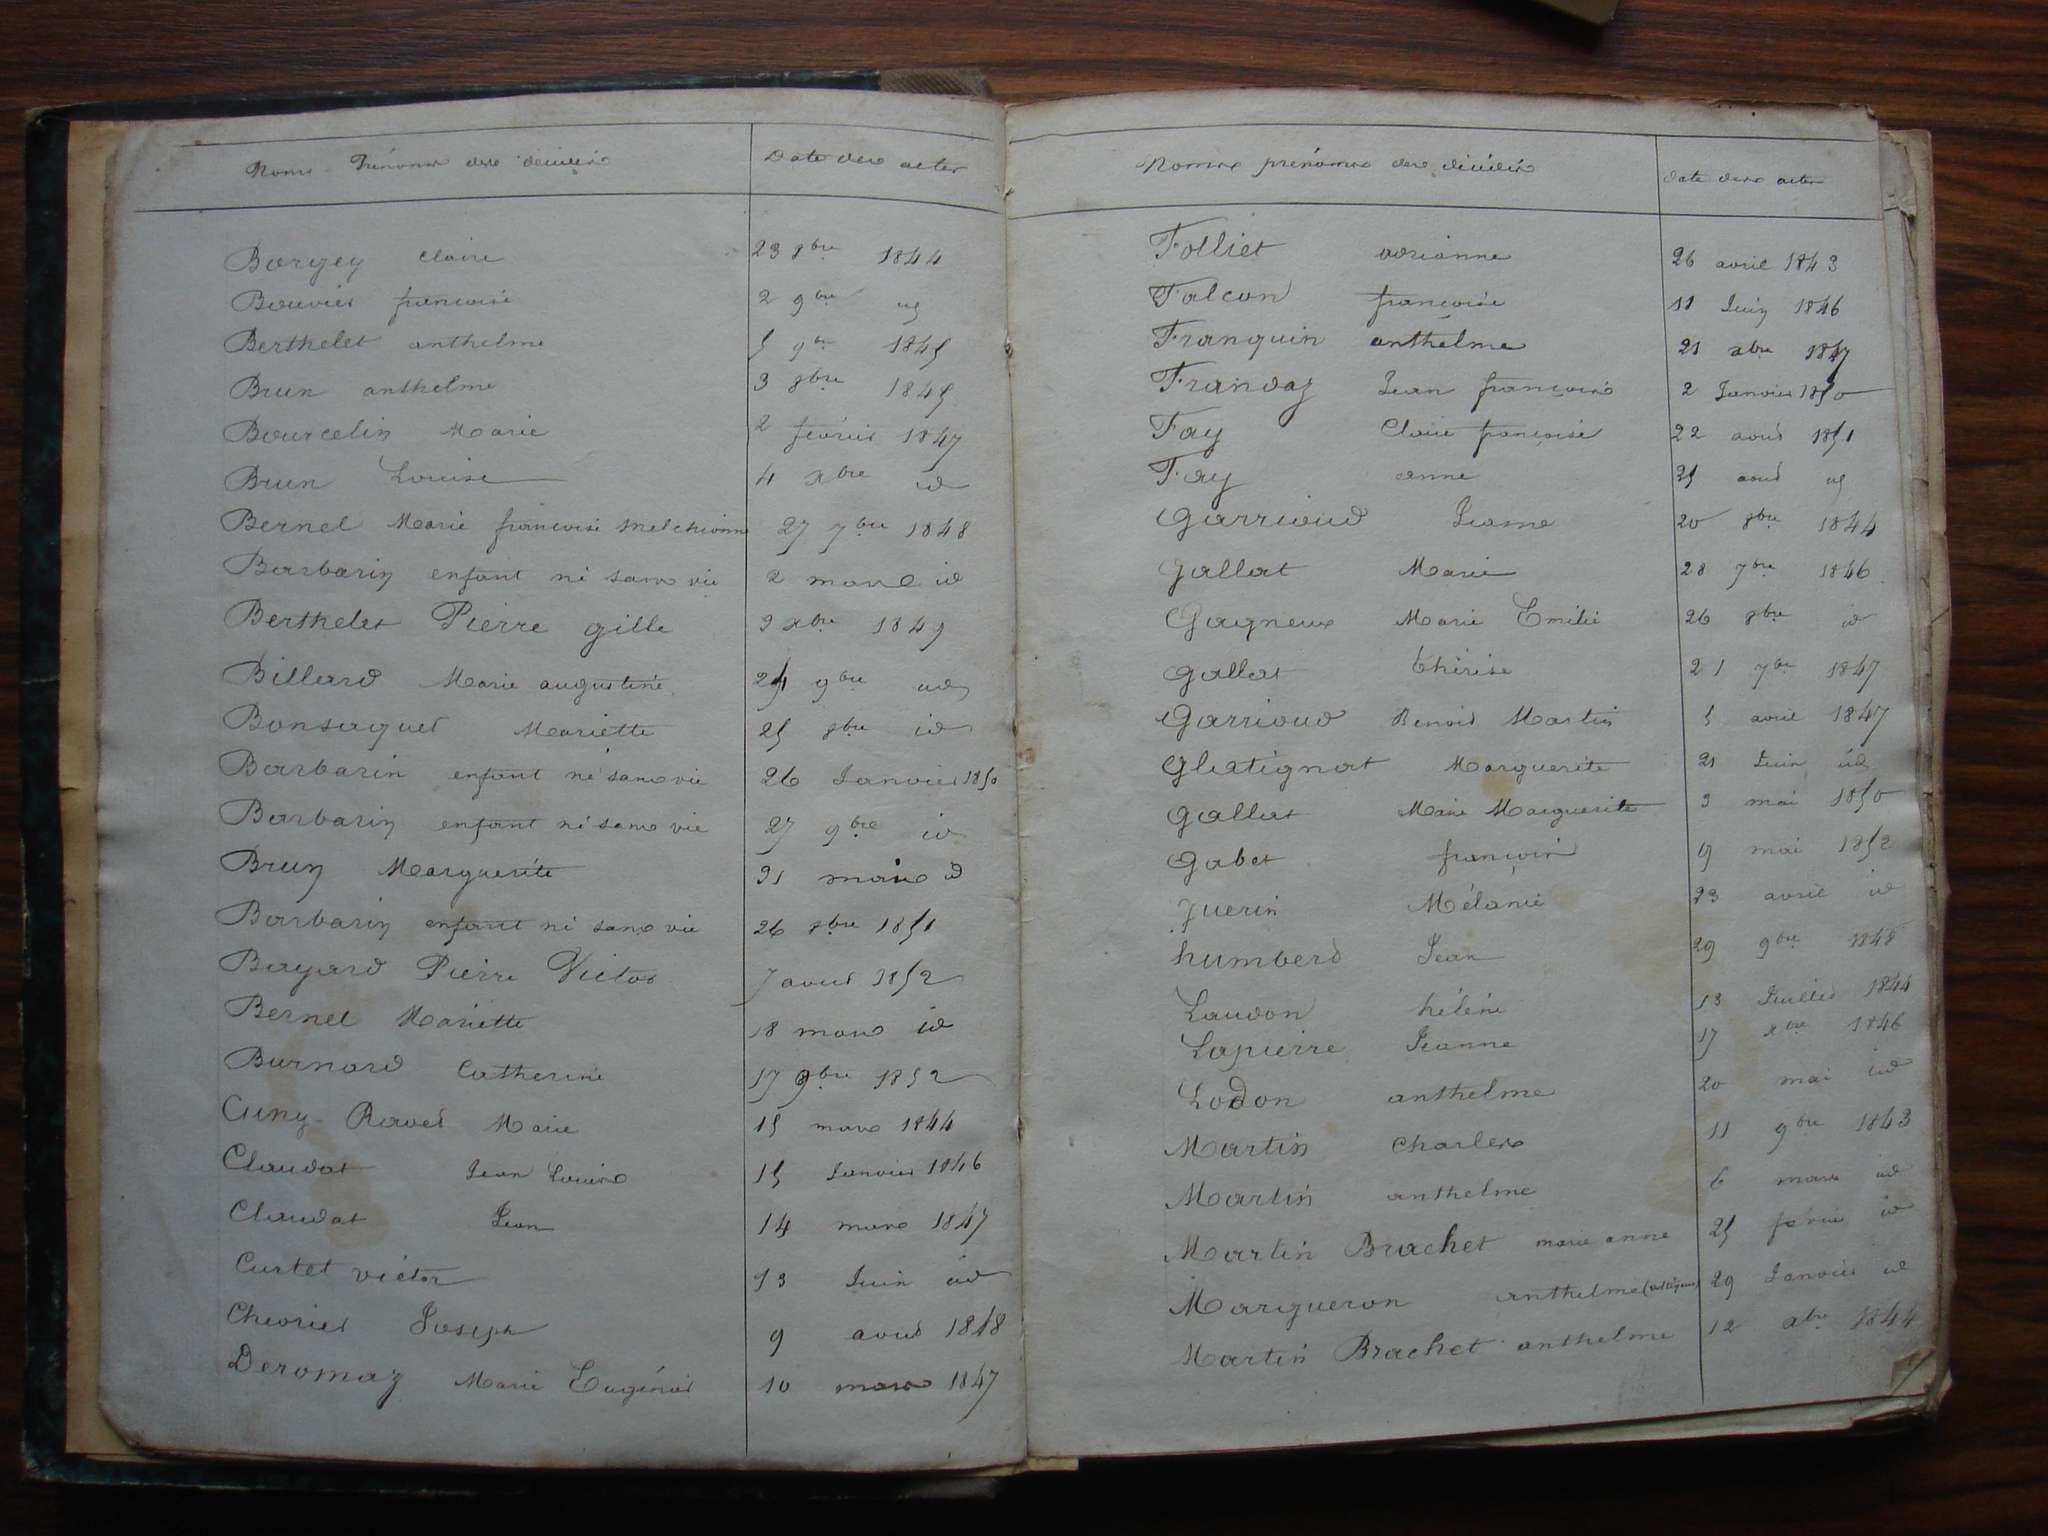 Noms Prénoms des décédés Date des actes
Borgey Claire 23 8bre 1844
Bouvier françoise 2 9bre id
Berthelet anthelme 5 9bre 1845
Brun anthelme 3 8bre 1845
Bourcelin Marie 2 février 1847
Brun Louise 4 xbre id
Bernel Marie françoise Melchionne 27 7bre 1848
Barbarin enfant né sans vie 2 mars id
Berthelet Pierre gille 3 xbre 1849
Billard Marie augustine 24 9bre id
Bonsaquet Mariette 25 8bre id
Barbarin enfant né sans vie 26 Janvier 1850
Barbarin enfant né sans vie 27 9bre id
Brun Marguerite 31 mars id
Barbarin enfant né sans vie 26 8bre 1851
Bayard Pierre Victor 7 aout 1852
Bernel Mariette 18 mars id
Burnard Catherine 17 9bre 1852
Cuny Ravet Marie 15 mars 1844
Claudat Jean Louis 15 Janvier 1846
Claudat Jean 14 mars 1847
Curtet victor 13 Juin id
Chevrier Joseph 9 aout 1848
Deromaz Marie Eugénie 10 mars 1847
Noms prénoms des décédés date des actes
Folliet adrianne 26 avril 1843
Falcon françoise 11 Juin 1846
Franquin anthelme 21 xbre 1847
Frandaz Jean françois 2 Janvier 1850
Fay Claire françoise 22 aout 1851
Fay anne 25 aout id
Garrioud Jeanne 20 8bre 1844
Gallat Marie 28 7bre 1846
Gagneux Marie Emilie 26 8bre id
Gallat thérèse 21 7bre 1847
Garrioud Benoit Martin 5 avril 1847
Glatignat Marguerite 21 Juin id
Gallat Marie Marguerite 3 mai 1850
Gabet françois 9 mai 1852
Guerin Mélanie 23 avril id
humberd Jean 29 9bre 1848
Laudon hélène 13 Juillet 1844
Lapierre Jeanne 17 xbre 1846
Lodon anthelme 20 mai id
Martin Charles 11 9bre 1843
Martin anthelme 6 mars id
Martin Brachet marie anne 25 février id
Margueron anthelme 29 Janvier id
Martin Brachet anthelme 12 xbre 1844